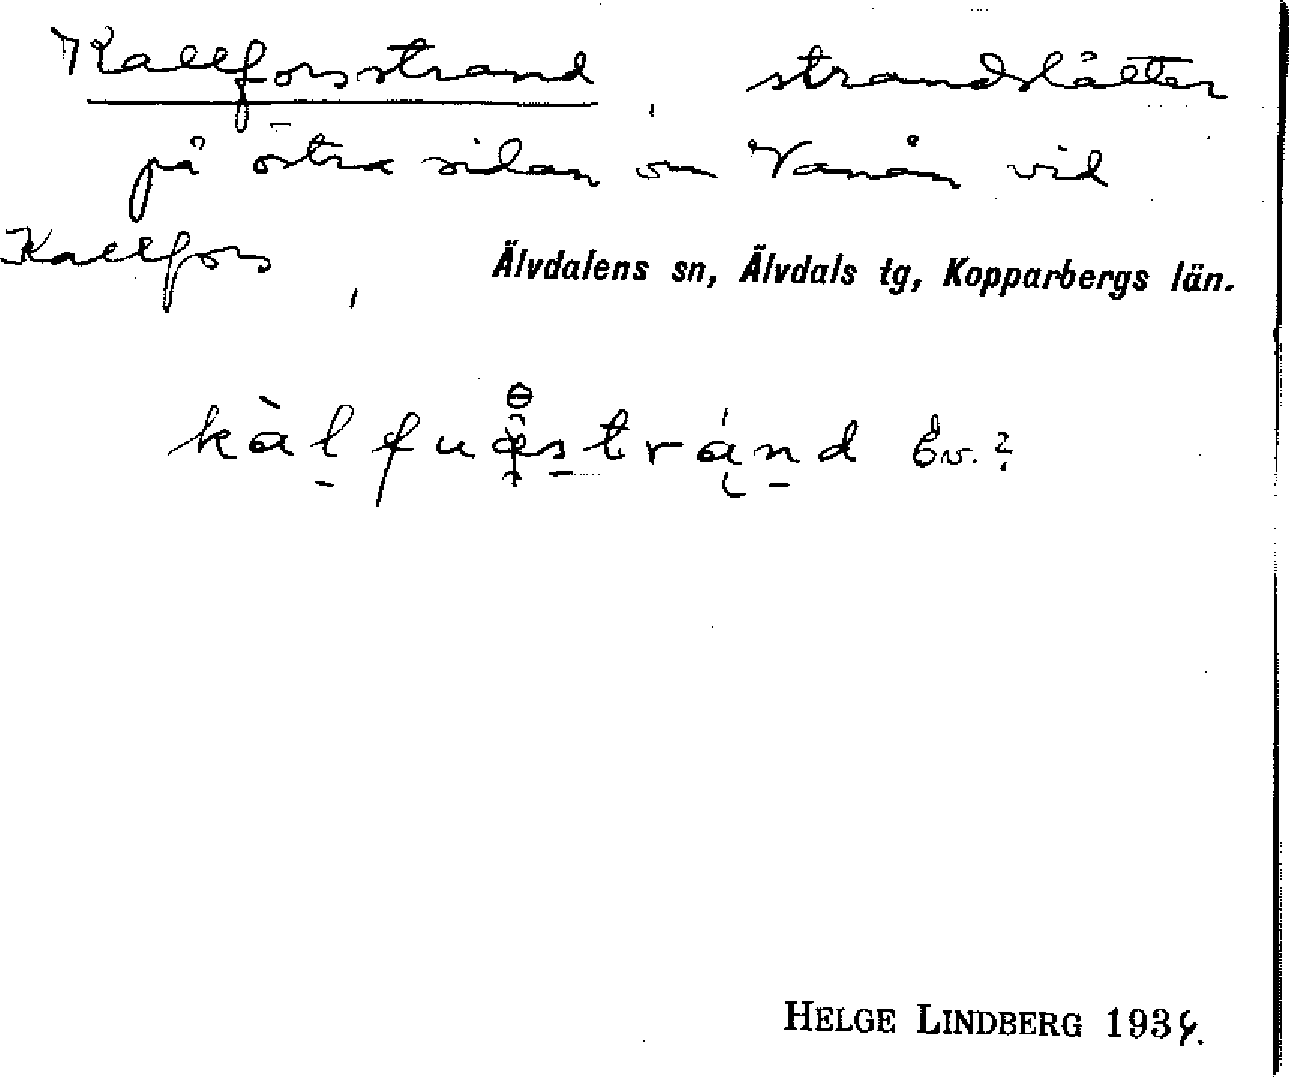 Kallforsstrand, strandslåtter
på östra sidan om Vanån vid
Kallfors,
Älvdalens sn, Älvdals tg, Kopparbergs län.
Ev.?
HELGE LINDBERG 193